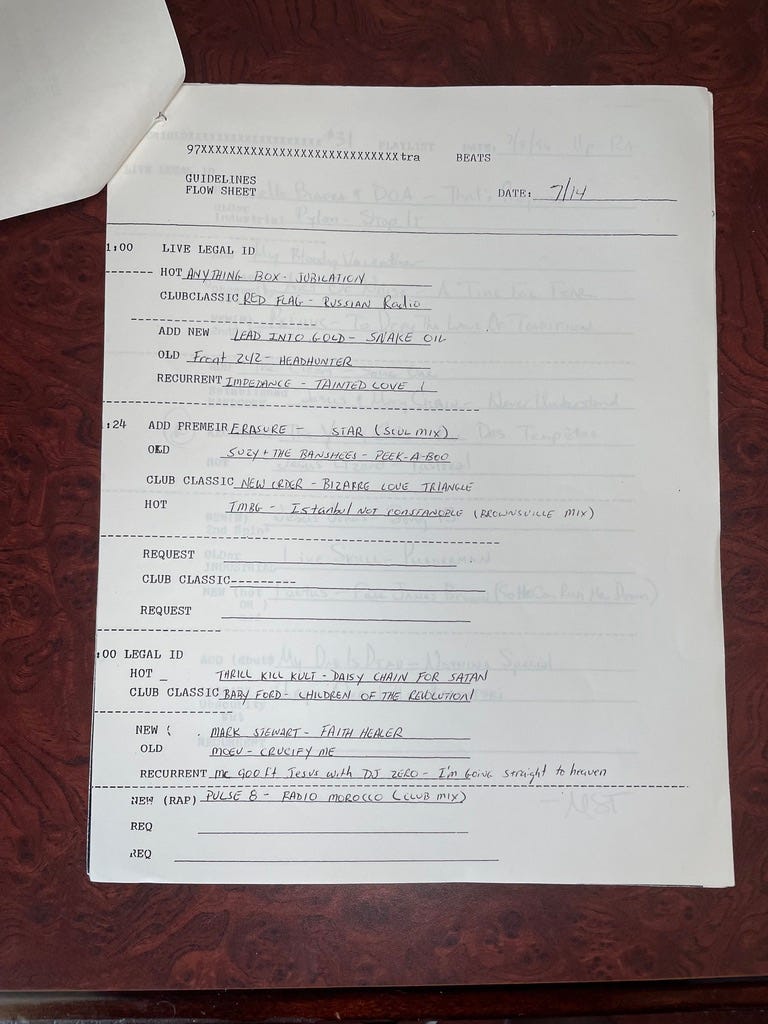 97XXXXXXXXXXXXXXXXXXXXXXXXXXXXXtra BEATS
GUIDELINES
FLOW SHEET DATE: 7/14
1:00 LIVE LEGAL ID
HOT ANYTHING BOX - JUBILATION
CLUBCLASSIC RED FLAG - RUSSIAN Radio
ADD NEW LEAD INTO GOLD - SNAKE OIL
OLD Front 242 - HEADHUNTER
RECURRENT IMPEDANCE - TAINTED LOVE
:24 ADD PREMEIR ERASURE - STAR (SOUL MIX)
OLD SUZY + THE BANSHEES - PEEK-A-BOO
CLUB CLASSIC NEW ORDER - BIZARRE LOVE TRIANGLE
HOT TMBG - Istanbul NOT CONSTANOBLE (BROWNSVILLE MIX)
REQUEST
CLUB CLASSIC
REQUEST
:00 LEGAL ID
HOT THRILL KILL KULT - DAISY CHAIN FOR SATAN
CLUB CLASSIC BABY FORD - CHILDREN OF THE REVOLUTION
NEW ( MARK STEWART - FAITH HEALER
OLD MOEV - CRUCIFY ME
RECURRENT MC 900 Ft Jesus with DJ ZERO - I'm GOING straight to heaven
NEW (RAP) PULSE 8 - RADIO MOROCCO (CLUB MIX)
REQ
REQ